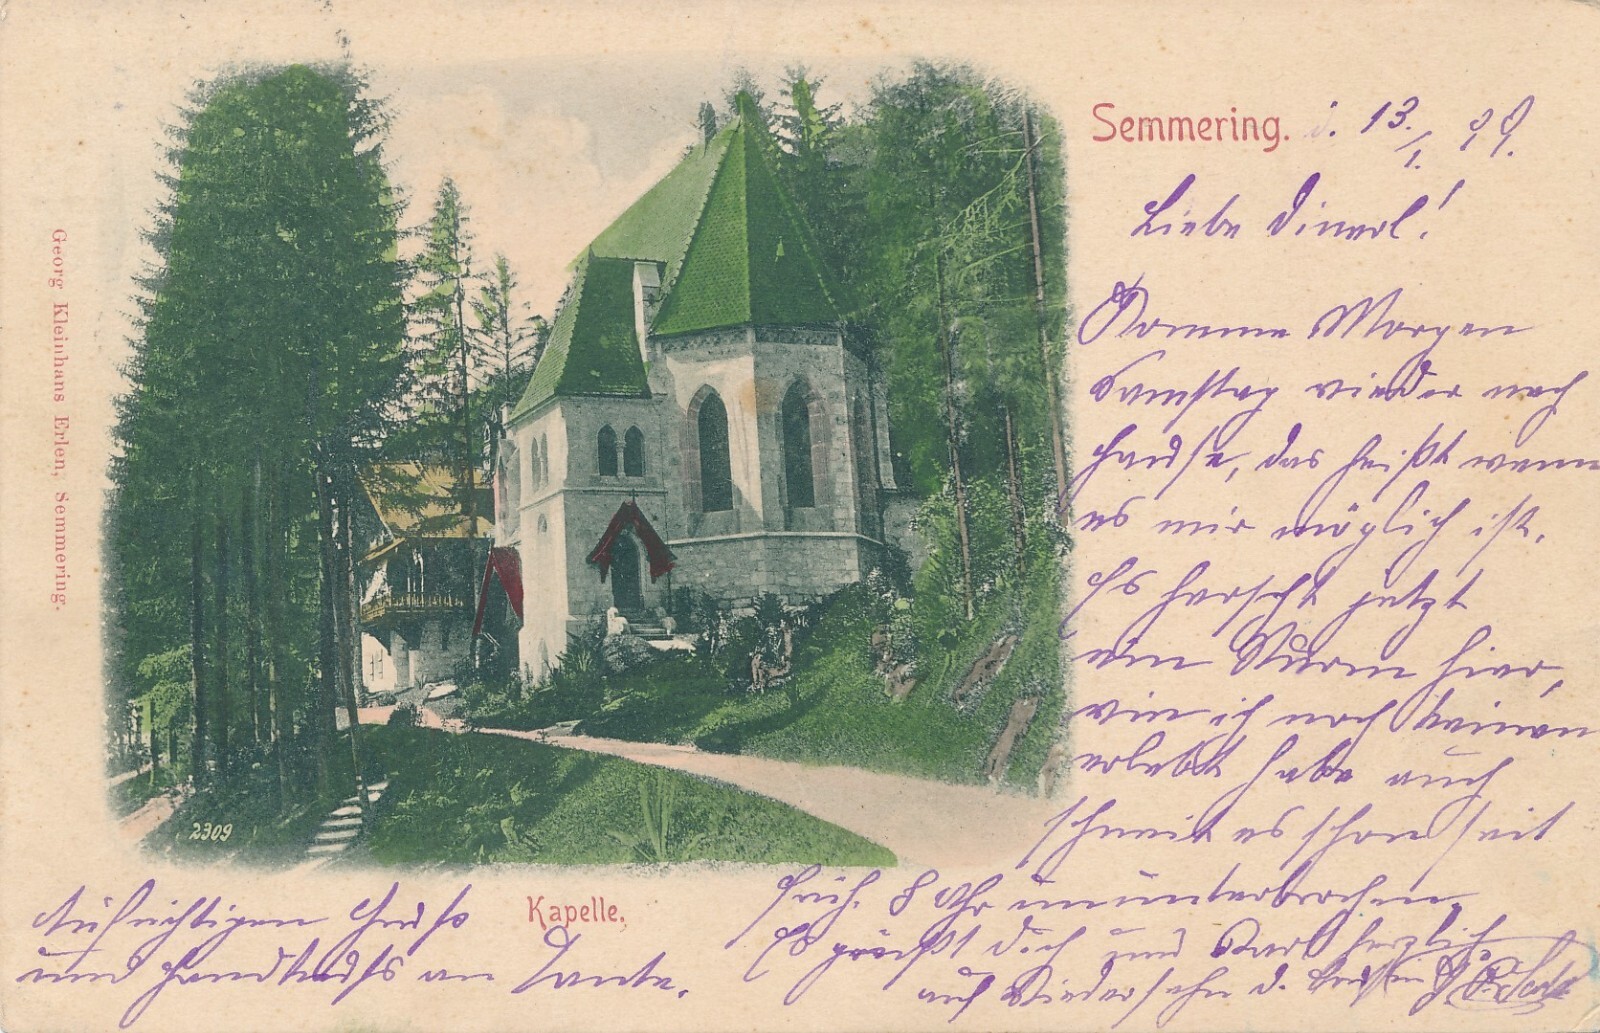 Semmering. d. 13./1. 99.
Liebe
Komme Morgen
Samstag wieder nach
Hause, das heißt wenn
es mir möglich ist.
Es herscht jetzt
ein Sturm hier,
wie ich noch keinen
erlebt habe auch
schneit es schon seit
früh. 8 Uhr ununterbrochen.
Es grüßt Dich und Karl herzlich
auf Wiedersehn d.
Aufrichtigen Gruß
und Handkuß an Tante.
Kapelle.
2309
Georg Kleinhans Erlen, Semmering.